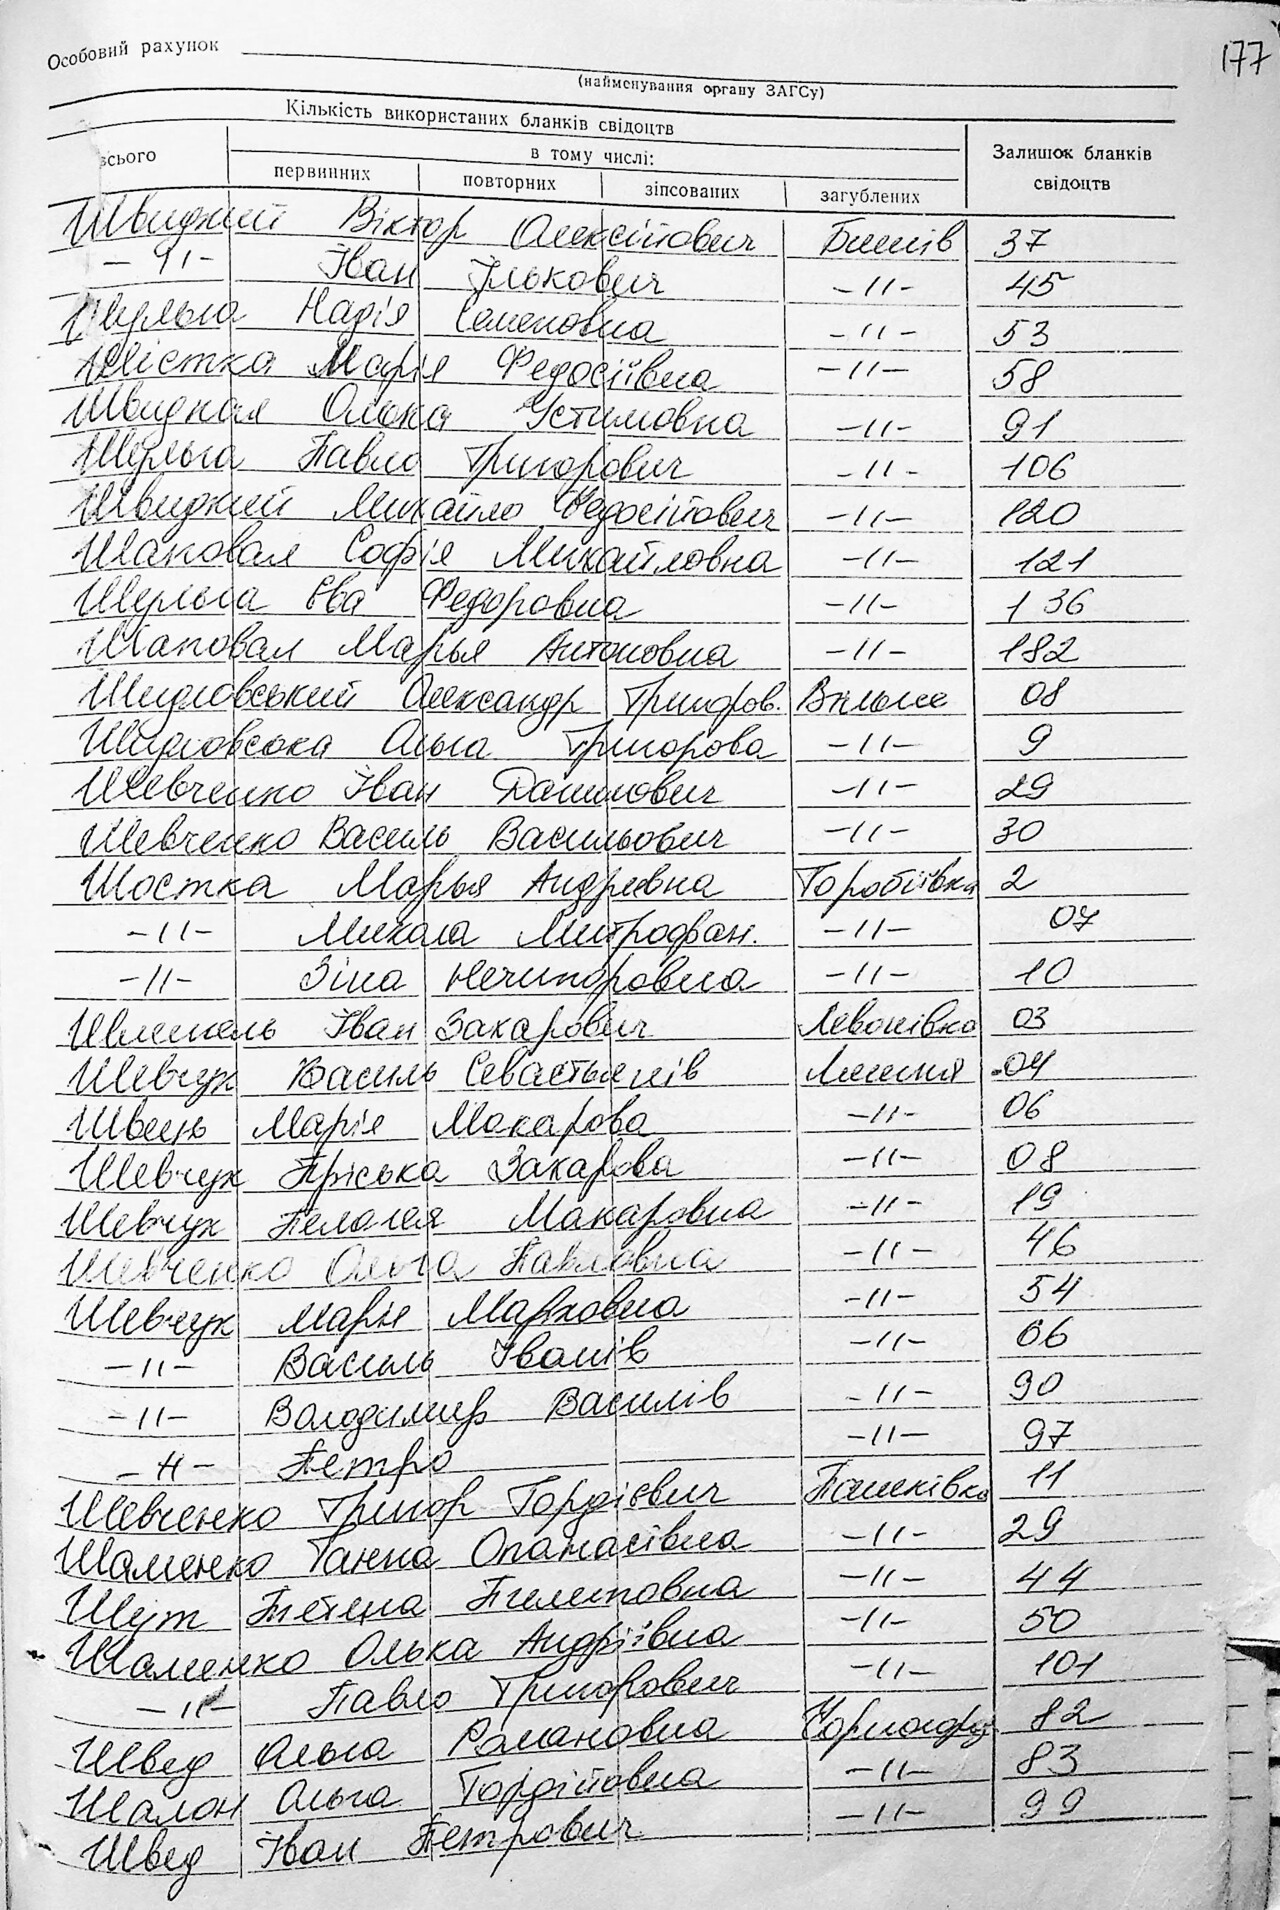 177
Особовий рахунок
(найменування органу ЗАГСу)
Кількість використаних бланків свідоцтв
всього
в тому числі:
Залишок бланків свідоцтв
первинних повторних зіпсованих загублених
Швидкий Віктор Олексійович Бишів 37
-11- Іван Ількович -11- 45
Шульга Надія Семеновна -11- 53
Шістка Марія Федосіївна -11- 58
Швидкая Олька Устимовна -11- 91
Шульга Павло Григорович -11- 106
Швидкий Михайло Федосійович -11- 120
Шаповал Софія Михайловна -11- 121
Шульга Єва Федоровна -11- 136
Шаповал Марья Антоновна -11- 182
Шидловський Олександр Григоров. 08
Шидловська Ольга Григорова -11- 9
Шевченко Іван Данилович -11- 29
Шевченко Василь Васильович -11- 30
Шостка Марья Андреевна Горобіївка 2
-11- Микола Митрофан. -11- 07
-11- Зіна Нечипоровна -11- 10
Іван Захарович Левонівка 03
Шевчук Василь Севастьянів 04
Швець Марія Макарова -11- 06
Шевчук Пріська Захарова -11- 08
Шевчук Пелагея Макаровна -11- 19
Шевченко Ольга Павловна -11- 46
Шевчук Марія Марковна -11- 54
-11- Василь Іванів -11- 66
-11- Володимир Василів -11- 90
-11- Петро -11- 97
Шевченко Григор Гордієвич Пашківка 11
Шаменко Ганна Опанасівна -11- 29
Шут Тетяна Пилиповна -11- 44
Шаменко Олька Андріївна -11- 50
-11- Павло Григорович -11- 101
Швед Ольга Романовна 82
Шалон Ольга Гордійовна -11- 83
Швед Іван Петрович -11- 99